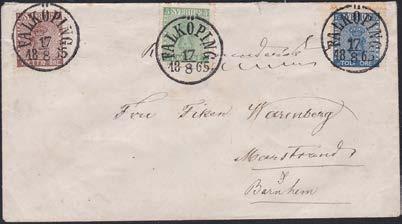 FALKÖPING
17
18 8 65
TRETTIO ÖRE
SVERIGE
FALKÖPING
17
18 8 65
FALKÖPING
17
18 8 65
TOLF ÖRE
Fru Fiken Warenberg
Marstrand
Barnhem